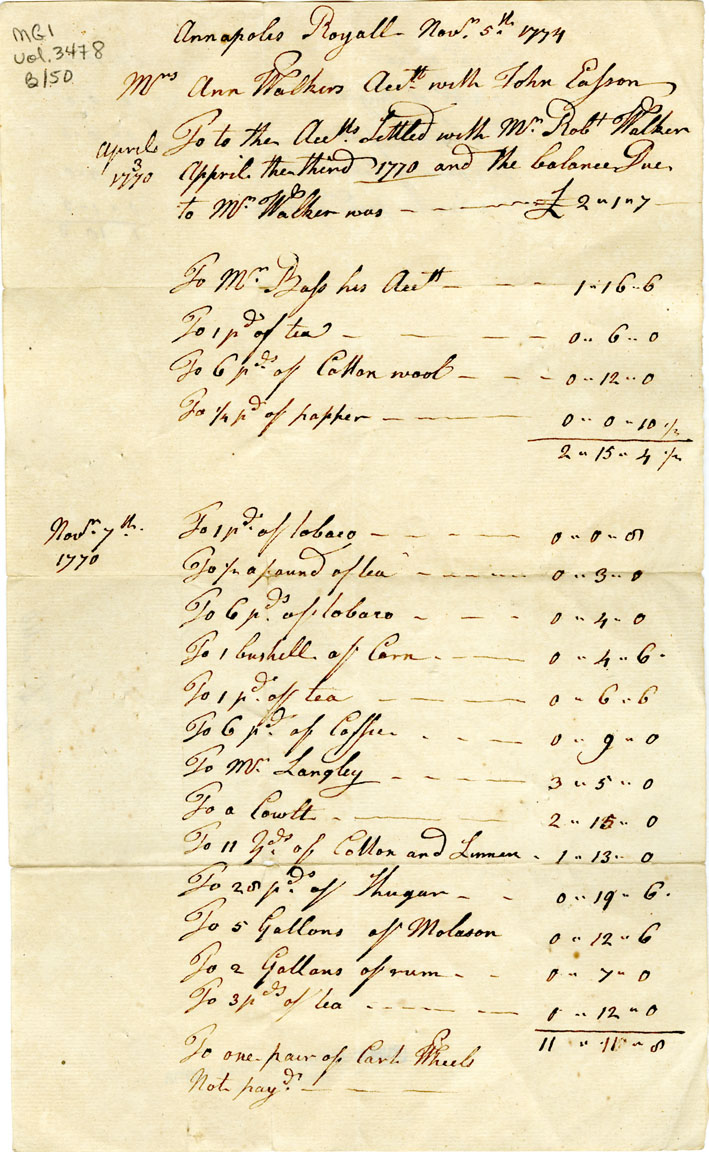 MG1
Vol. 3478
B/50
Annapolis Royall Novr. 5th. 1774
Mrs Ann Walkers Acctt with John Easson
April 3 1770 To to the Acctts. Settled with Mr. Robt Walker
Appril the third 1770 and the balance Due
to Mr. Walker was £ 2 " 1 " 7
To Mr. Bass his Acctt 1 " 16 " 6
To 1 pd. of tea 0 " 6 " 0
To 6 pds of Cotton wool 0 " 12 " 0
To 1/4 pd of papper 0 " 0 " 10 1/2
2 " 15 " 4 1/2
Novr. 7th. 1770 To 1 pd. of tobaco 0 " 0 " 8
To 1/2 a pound of tea 0 " 3 " 0
To 6 pds of tobaco 0 " 4 " 0
To 1 bushell of Corn 0 " 4 " 6
To 1 pd. of tea 0 " 6 " 6
To 6 pd. of Coffie 0 " 9 " 0
To Mr. Langley 3 " 5 " 0
To a Cowlt 2 " 15 " 0
To 11 Yds of Cotton and Linnen 1 " 13 " 0
To 28 pds of Shugar 0 " 19 " 6
To 5 Gallons of Molason 0 " 12 " 6
To 2 Gallons of rum 0 " 7 " 0
To 3 pds of tea 0 " 12 " 0
11 " 11 " 8
To one pair of Cart Wheels
Not payd.